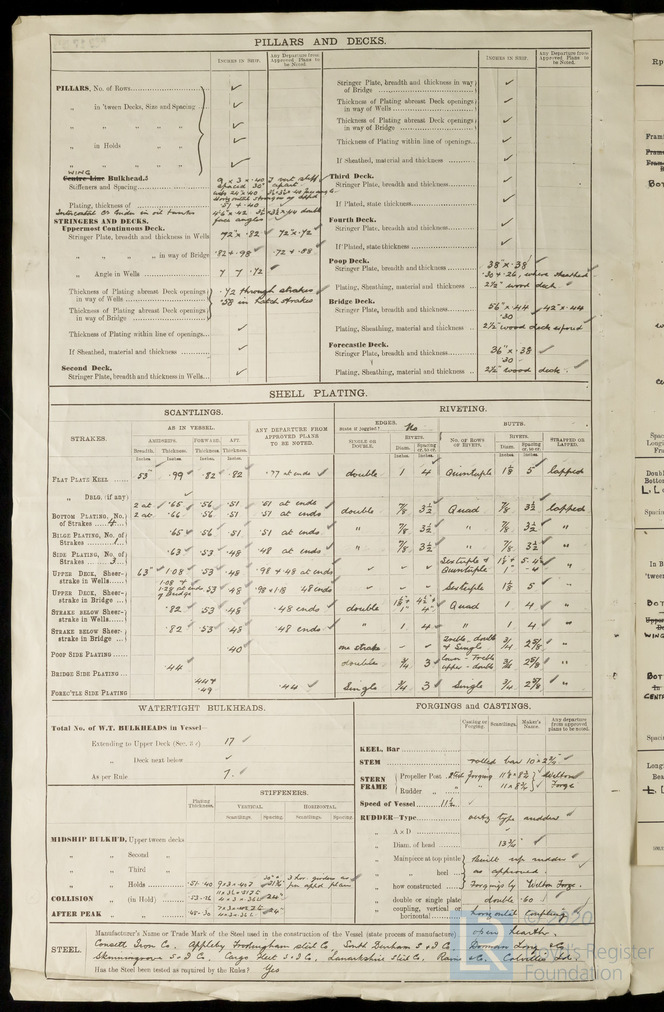 PILLARS AND DECKS.
INCHES IN SHIP.
Any Departure from Approved Plans to be Noted.
INCHES IN SHIP.
Any Departure from Approved Plans to be Noted.
PILLARS, No. of Rows
„ in 'tween Decks, Size and Spacing
„ „ „ „
„ in Holds
„ „ „
WING
Centre Line Bulkhead.
Stiffeners and Spacing
9 x 3 x .40
spaced 30" apart.
Plating, thickness of
.51 & .40
STRINGERS AND DECKS.
Uppermost Continuous Deck.
Stringer Plate, breadth and thickness in Wells
72" x .82
72" x .72
„ „ „ „ in way of Bridge
.82 & .98
.72 & .88
„ Angle in Wells
7 7 .72
Thickness of Plating abreast Deck openings in way of Wells
.72 through strakes
.58 in hatch strakes
Thickness of Plating abreast Deck openings in way of Bridge
Thickness of Plating within line of openings
If Sheathed, material and thickness
Second Deck.
Stringer Plate, breadth and thickness in Wells
Stringer Plate, breadth and thickness in way of Bridge
Thickness of Plating abreast Deck openings in way of Wells
Thickness of Plating abreast Deck openings in way of Bridge
Thickness of Plating within line of openings
If Sheathed, material and thickness
Third Deck.
Stringer Plate, breadth and thickness
If Plated, state thickness
Fourth Deck.
Stringer Plate, breadth and thickness
If Plated, state thickness
Poop Deck.
Stringer Plate, breadth and thickness
38" x .38
.30 & .26, where sheathed
Plating, Sheathing, material and thickness
2½" wood deck
Bridge Deck.
Stringer Plate, breadth and thickness
56" x .44
42" x .44
.30
Plating, Sheathing, material and thickness
2½" wood deck
Forecastle Deck.
Stringer Plate, breadth and thickness
36" x .38
.30
Plating, Sheathing, material and thickness
2½" wood deck.
SHELL PLATING.
SCANTLINGS.
RIVETING.
STRAKES.
AS IN VESSEL.
ANY DEPARTURE FROM APPROVED PLANS TO BE NOTED.
EDGES.
State if joggled? No
BUTTS.
AMIDSHIPS.
FORWARD.
AFT.
SINGLE OR DOUBLE.
RIVETS.
NO. OF ROWS OF RIVETS.
RIVETS.
STRAPPED OR LAPPED.
Breadth. Thickness. Thickness. Thickness.
Diam. Spacing cr. to cr.
Diam. Spacing cr. to cr.
Inches. Inches. Inches. Inches.
FLAT PLATE KEEL
53" .99 .82 .82 .77 at ends double 1 4 Quintuple 1⅛ 5 lapped
„ DBLG. (if any)
BOTTOM PLATING, No. of Strakes 4
2 at .65 .56 .51 .51 at ends
2 at .66 .56 .51 .51 at ends double ⅞ 3½ Quad ⅞ 3½ lapped
BILGE PLATING, No. of Strakes 1
.65 .56 .51 .51 at ends „ ⅞ 3½ „ ⅞ 3½ „
SIDE PLATING, No. of Strakes 3
.63 .53 .48 .48 at ends „ ⅞ 3½ „ ⅞ 3½ „
UPPER DECK, Sheerstrake in Wells
63" 1.08 .53 .48 .98 & .48 at ends Sextuple & Quintuple „
UPPER DECK, Sheerstrake in Bridge
1.08 & 1.28 at ends of Bridge .53 .48 .98 & 1.18 .48 ends Sextuple 1⅛ 5 „
STRAKE BELOW SHEERSTRAKE in Wells
.82 .53 .48 .48 ends double Quad 1 4 „
STRAKE BELOW SHEERSTRAKE in Bridge
.82 .53 .48 .48 ends „ 1 4 „ 1 4 „
POOP SIDE PLATING
.40 one strake ¾ 2⅝ „
BRIDGE SIDE PLATING
.44 double ¾ 3 ¾ 2⅝ „
FORE'CTLE SIDE PLATING
.44 & .49 .44 Single ¾ 3 Single ¾ 2⅝ „
WATERTIGHT BULKHEADS.
Total No. of W.T. BULKHEADS in Vessel
Extending to Upper Deck (Sec. 3 c) 17
„ Deck next below
As per Rule 7.
STIFFENERS.
Plating Thickness.
VERTICAL.
HORIZONTAL.
Scantlings. Spacing. Scantlings. Spacing.
MIDSHIP BULKH'D, Upper tween decks
„ Second „
„ Third „
„ Holds
.51 .40
COLLISION „ (in Hold)
24"
AFTER PEAK „ „
.45-.30
24"
FORGINGS and CASTINGS.
Casting or Forging.
Scantlings.
Maker's Name.
Any departure from approved plans to be noted.
KEEL, Bar
STEM
rolled bar 10 x 2¾"
STERN FRAME
Propeller Post
Forging
Wilton Forge
Rudder „
„
Speed of Vessel 11½
RUDDER—Type
„ A x D
„ Diam. of head 13¾"
„ Mainpiece at top pintle
Built up rudder
„ „ heel
as approved.
„ how constructed
Forgings by Wilton Forge.
„ double or single plate
double .60
„ coupling, vertical or horizontal
horizontal coupling
STEEL.
Manufacturer's Name or Trade Mark of the Steel used in the construction of the Vessel (state process of manufacture)
open hearth.
Consett Iron Co. Appleby Frodingham Steel Co. South Durham S & I Co. Dorman Long & Co
Skinningrove S & I Co. Cargo Fleet S & I Co. Lanarkshire Steel Co. Colvilles Ltd.
Has the Steel been tested as required by the Rules? Yes
© 2020
Lloyd's Register
Foundation